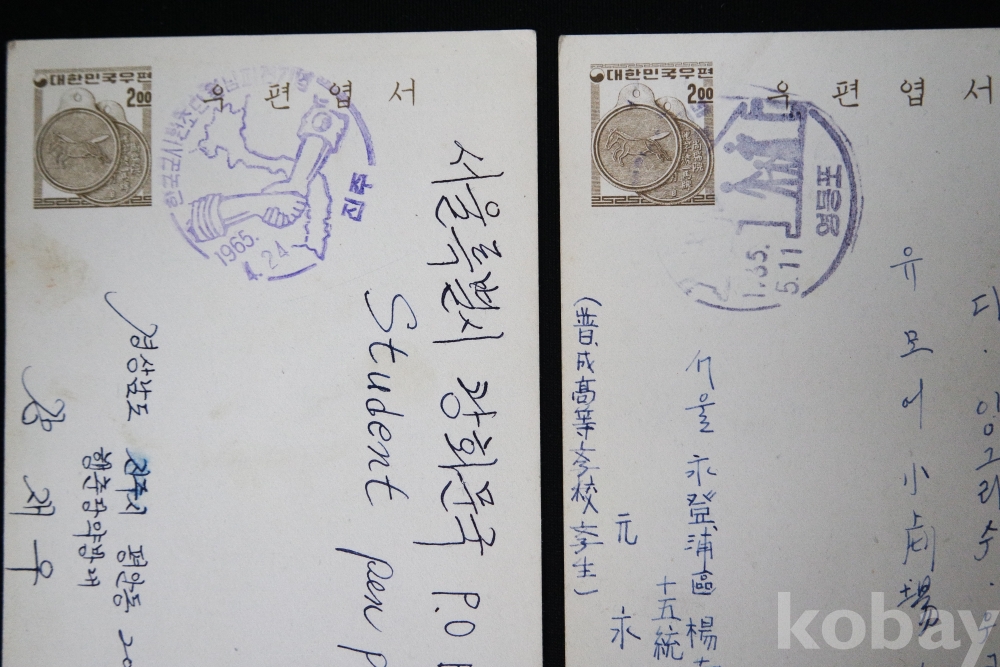 대한민국우편
2.00
우 편 엽 서
진주
1965.
4.24
서울특별시 광화문국 P.O
Student pen
경상남도 진주시 평안동
행춘당약방내
강 재 우
대한민국우편
2.00
우 편 엽 서
영등포
1965.
5.11
디. 잉그리수.
유 모 어 小 劇 場
서울 永登浦區 楊
十五統
元 永
(普成高等学校 学生)
kobay